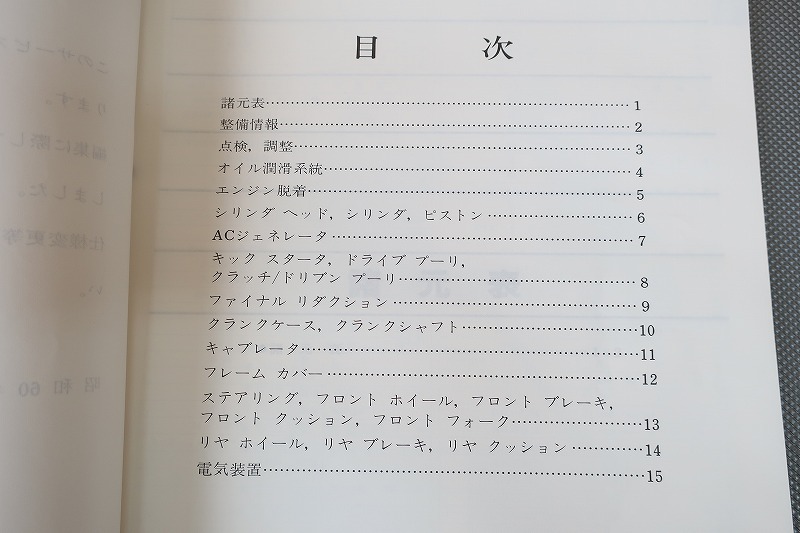 目 次
諸元表…… 1
整備情報…… 2
点検，調整…… 3
オイル潤滑系統…… 4
エンジン脱着…… 5
シリンダ ヘッド，シリンダ，ピストン…… 6
ACジェネレータ…… 7
キック スタータ，ドライブ プーリ，
クラッチ/ドリブン プーリ…… 8
ファイナル リダクション…… 9
クランクケース，クランクシャフト…… 10
キャブレータ…… 11
フレーム カバー…… 12
ステアリング，フロント ホイール，フロント ブレーキ，
フロント クッション，フロント フォーク…… 13
リヤ ホイール，リヤ ブレーキ，リヤ クッション…… 14
電気装置…… 15